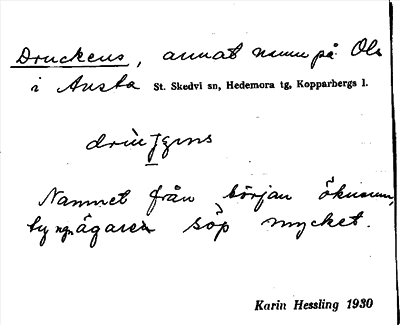 Druckens, annat namn på Ols
i Ansta St. Skedvi sn, Hedemora tg, Kopparbergs l.
Namnet från början öknamn,
ty ägaren söp mycket.
Karin Hessling 1930